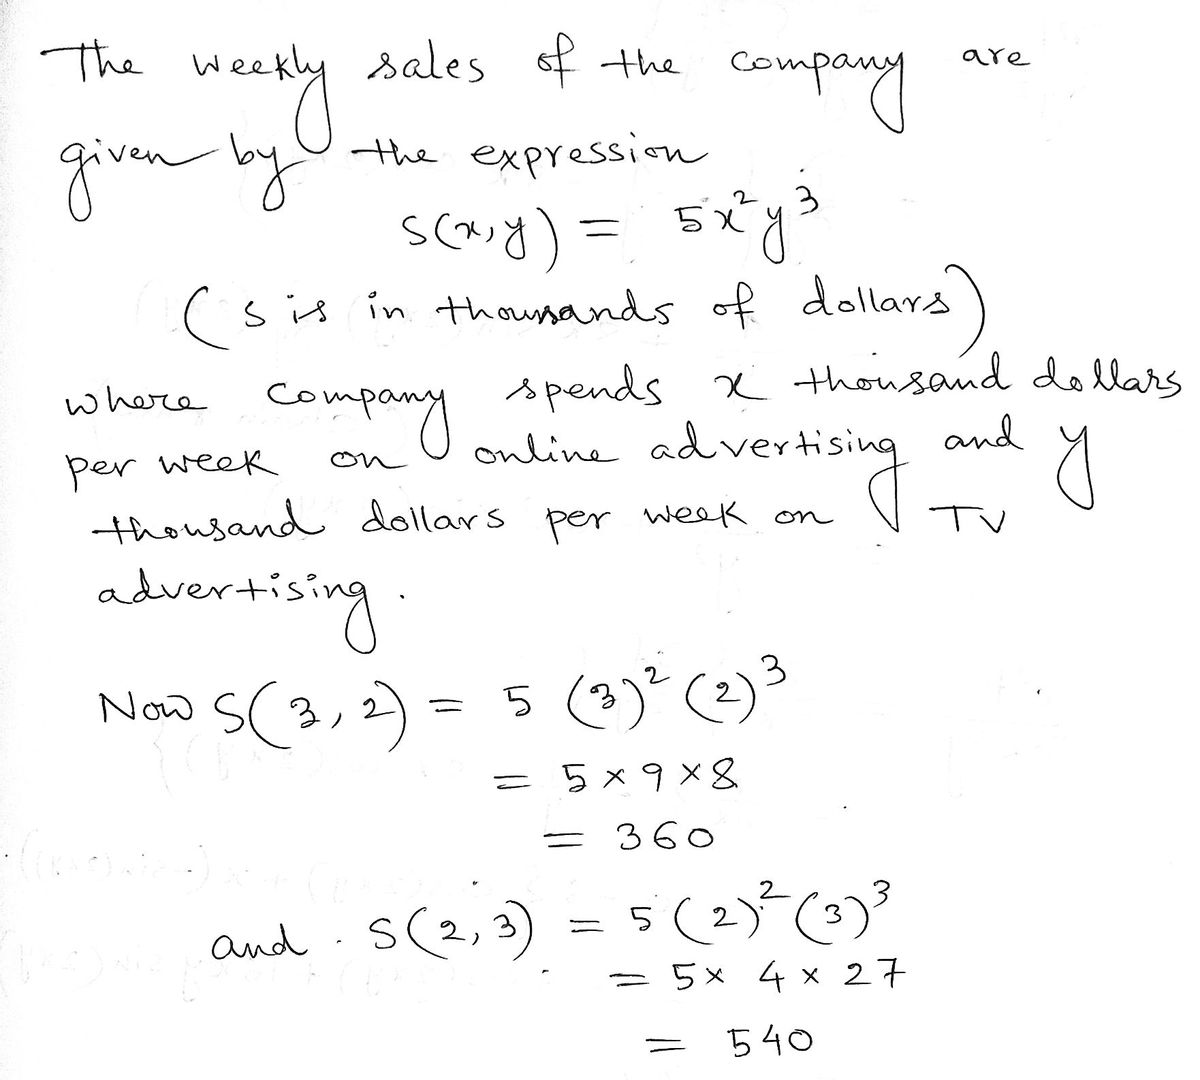 The weekly sales of the company are
given by the expression
S(x,y) = 5x²y³
(S is in thousands of dollars)
where company spends x thousand dollars
per week on online advertising and y
thousand dollars per week on TV
advertising.
Now S(3,2) = 5 (3)² (2)³
= 5 × 9 × 8
= 360
and S(2,3) = 5 (2)² (3)³
= 5 × 4 × 27
= 540